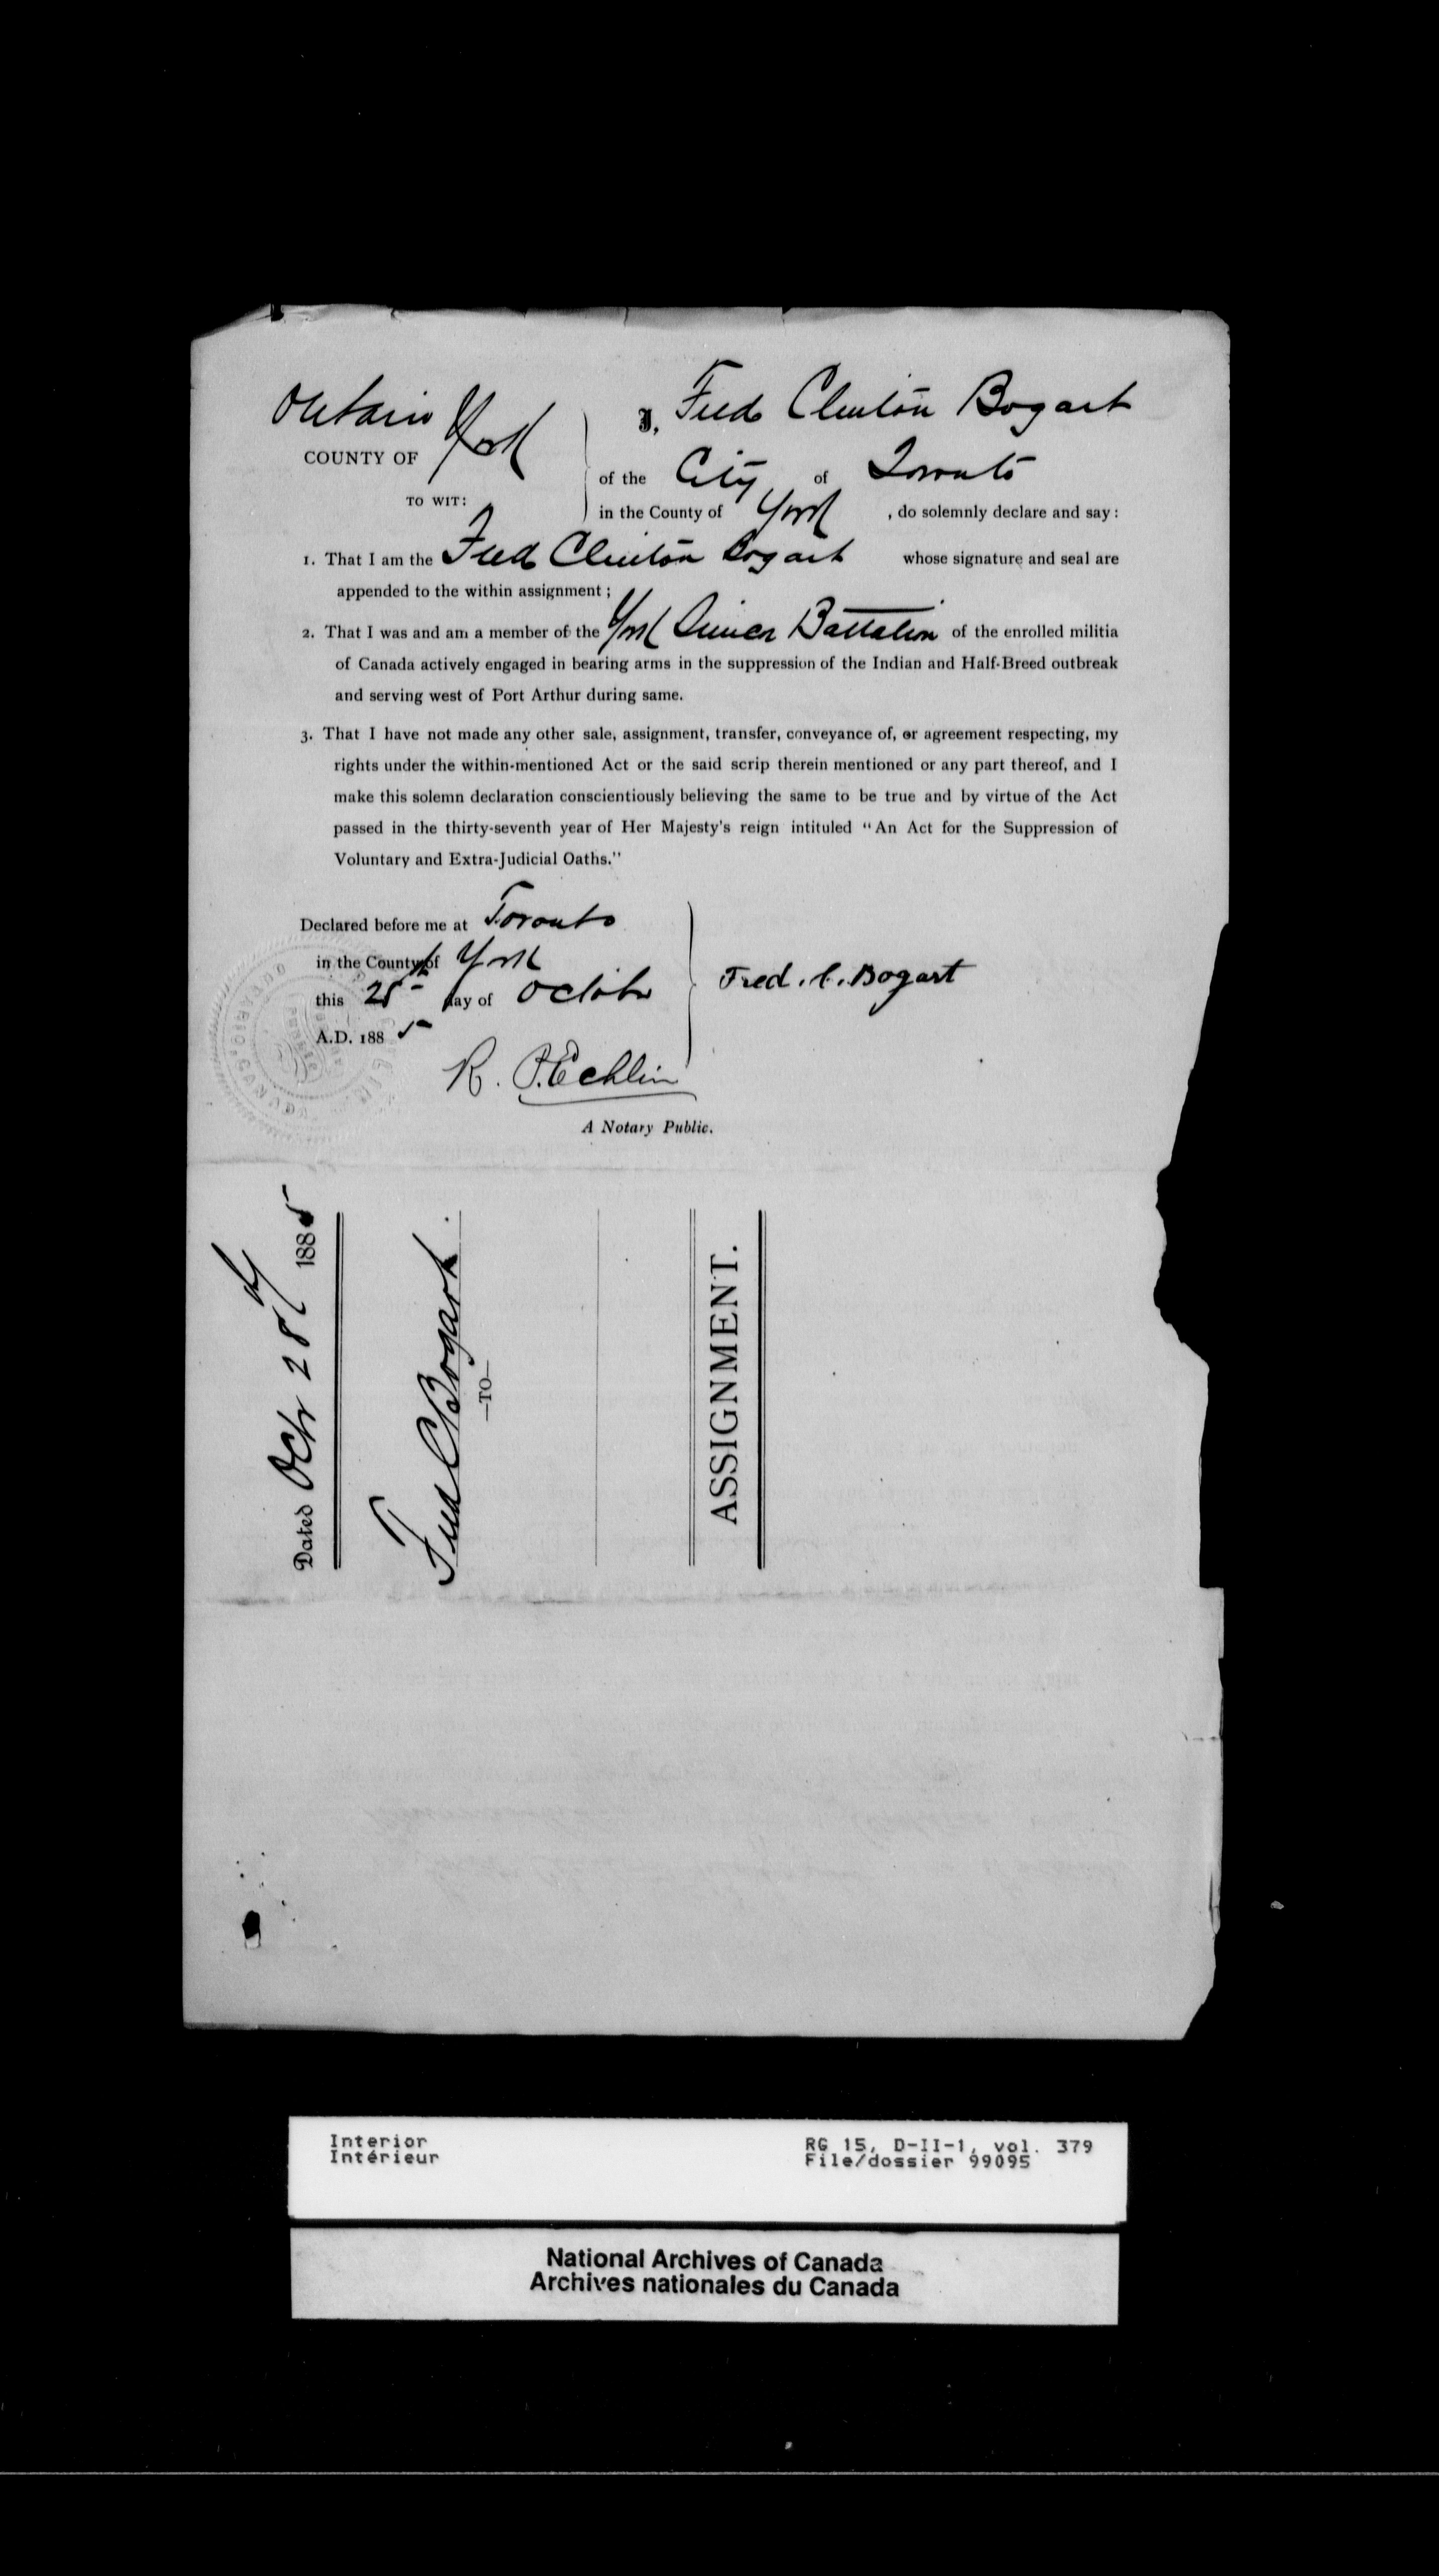 Ontario
COUNTY OF York
TO WIT:
I, Fred Clinton Bogart
of the City of Toronto
in the County of York , do solemnly declare and say:
1. That I am the Fred Clinton Bogart whose signature and seal are
appended to the within assignment;
2. That I was and am a member of the York Simcoe Battalion of the enrolled militia
of Canada actively engaged in bearing arms in the suppression of the Indian and Half-Breed outbreak
and serving west of Port Arthur during same.
3. That I have not made any other sale, assignment, transfer, conveyance of, or agreement respecting, my
rights under the within-mentioned Act or the said scrip therein mentioned or any part thereof, and I
make this solemn declaration conscientiously believing the same to be true and by virtue of the Act
passed in the thirty-seventh year of Her Majesty's reign intituled "An Act for the Suppression of
Voluntary and Extra-Judicial Oaths."
Declared before me at Toronto
in the County of York
this 28th day of October
A.D. 1885
Fred. C. Bogart
R. P. Echlin
A Notary Public.
Dated Octr 28th 1885
Fred C Bogart.
—TO—
ASSIGNMENT.
Interior
Intérieur
RG 15, D-II-1, vol. 379
File/dossier 99095
National Archives of Canada
Archives nationales du Canada